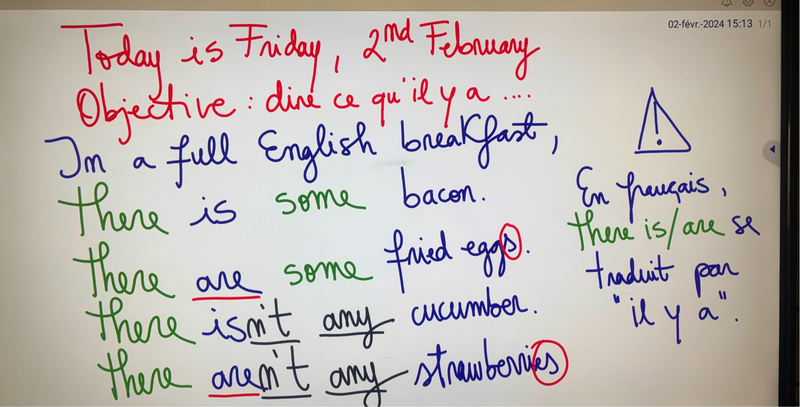 02-févr.-2024 15:13 1/1
Today is Friday, 2nd February
Objective : dire ce qu'il y a ....
In a full English breakfast,
there is some bacon.
there are some fried eggs.
there isn't any cucumber.
there aren't any strawberries
En français,
there is/are se
traduit par
"il y a".